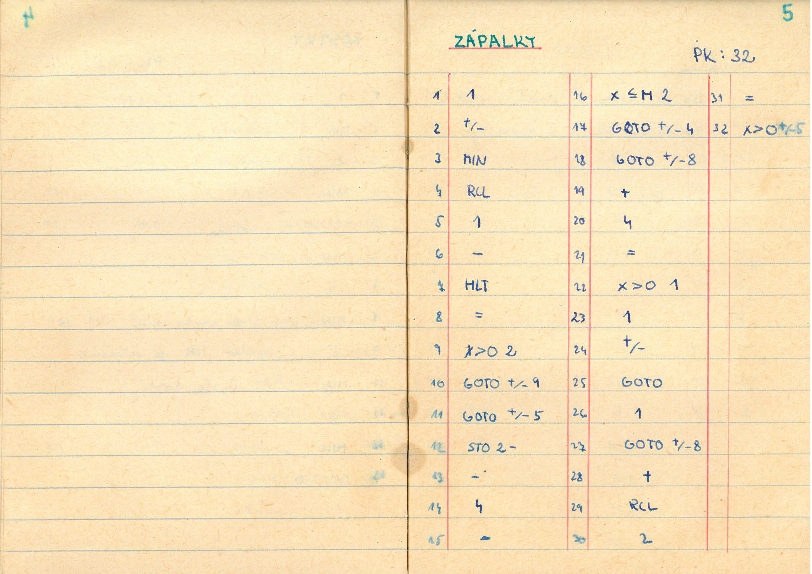 4
5
ZÁPALKY
PK: 32
1 1 16 x ≤ M 2 31 =
2 +/- 17 GOTO +/- 4 32 x>0 +/-5
3 MIN 18 GOTO +/-8
4 RCL 19 +
5 1 20 4
6 - 21 =
7 HLT 22 x>0 1
8 = 23 1
9 x>0 2 24 +/-
10 GOTO +/- 9 25 GOTO
11 GOTO +/- 5 26 1
12 STO 2 - 27 GOTO +/-8
13 - 28 +
14 4 29 RCL
15 - 30 2